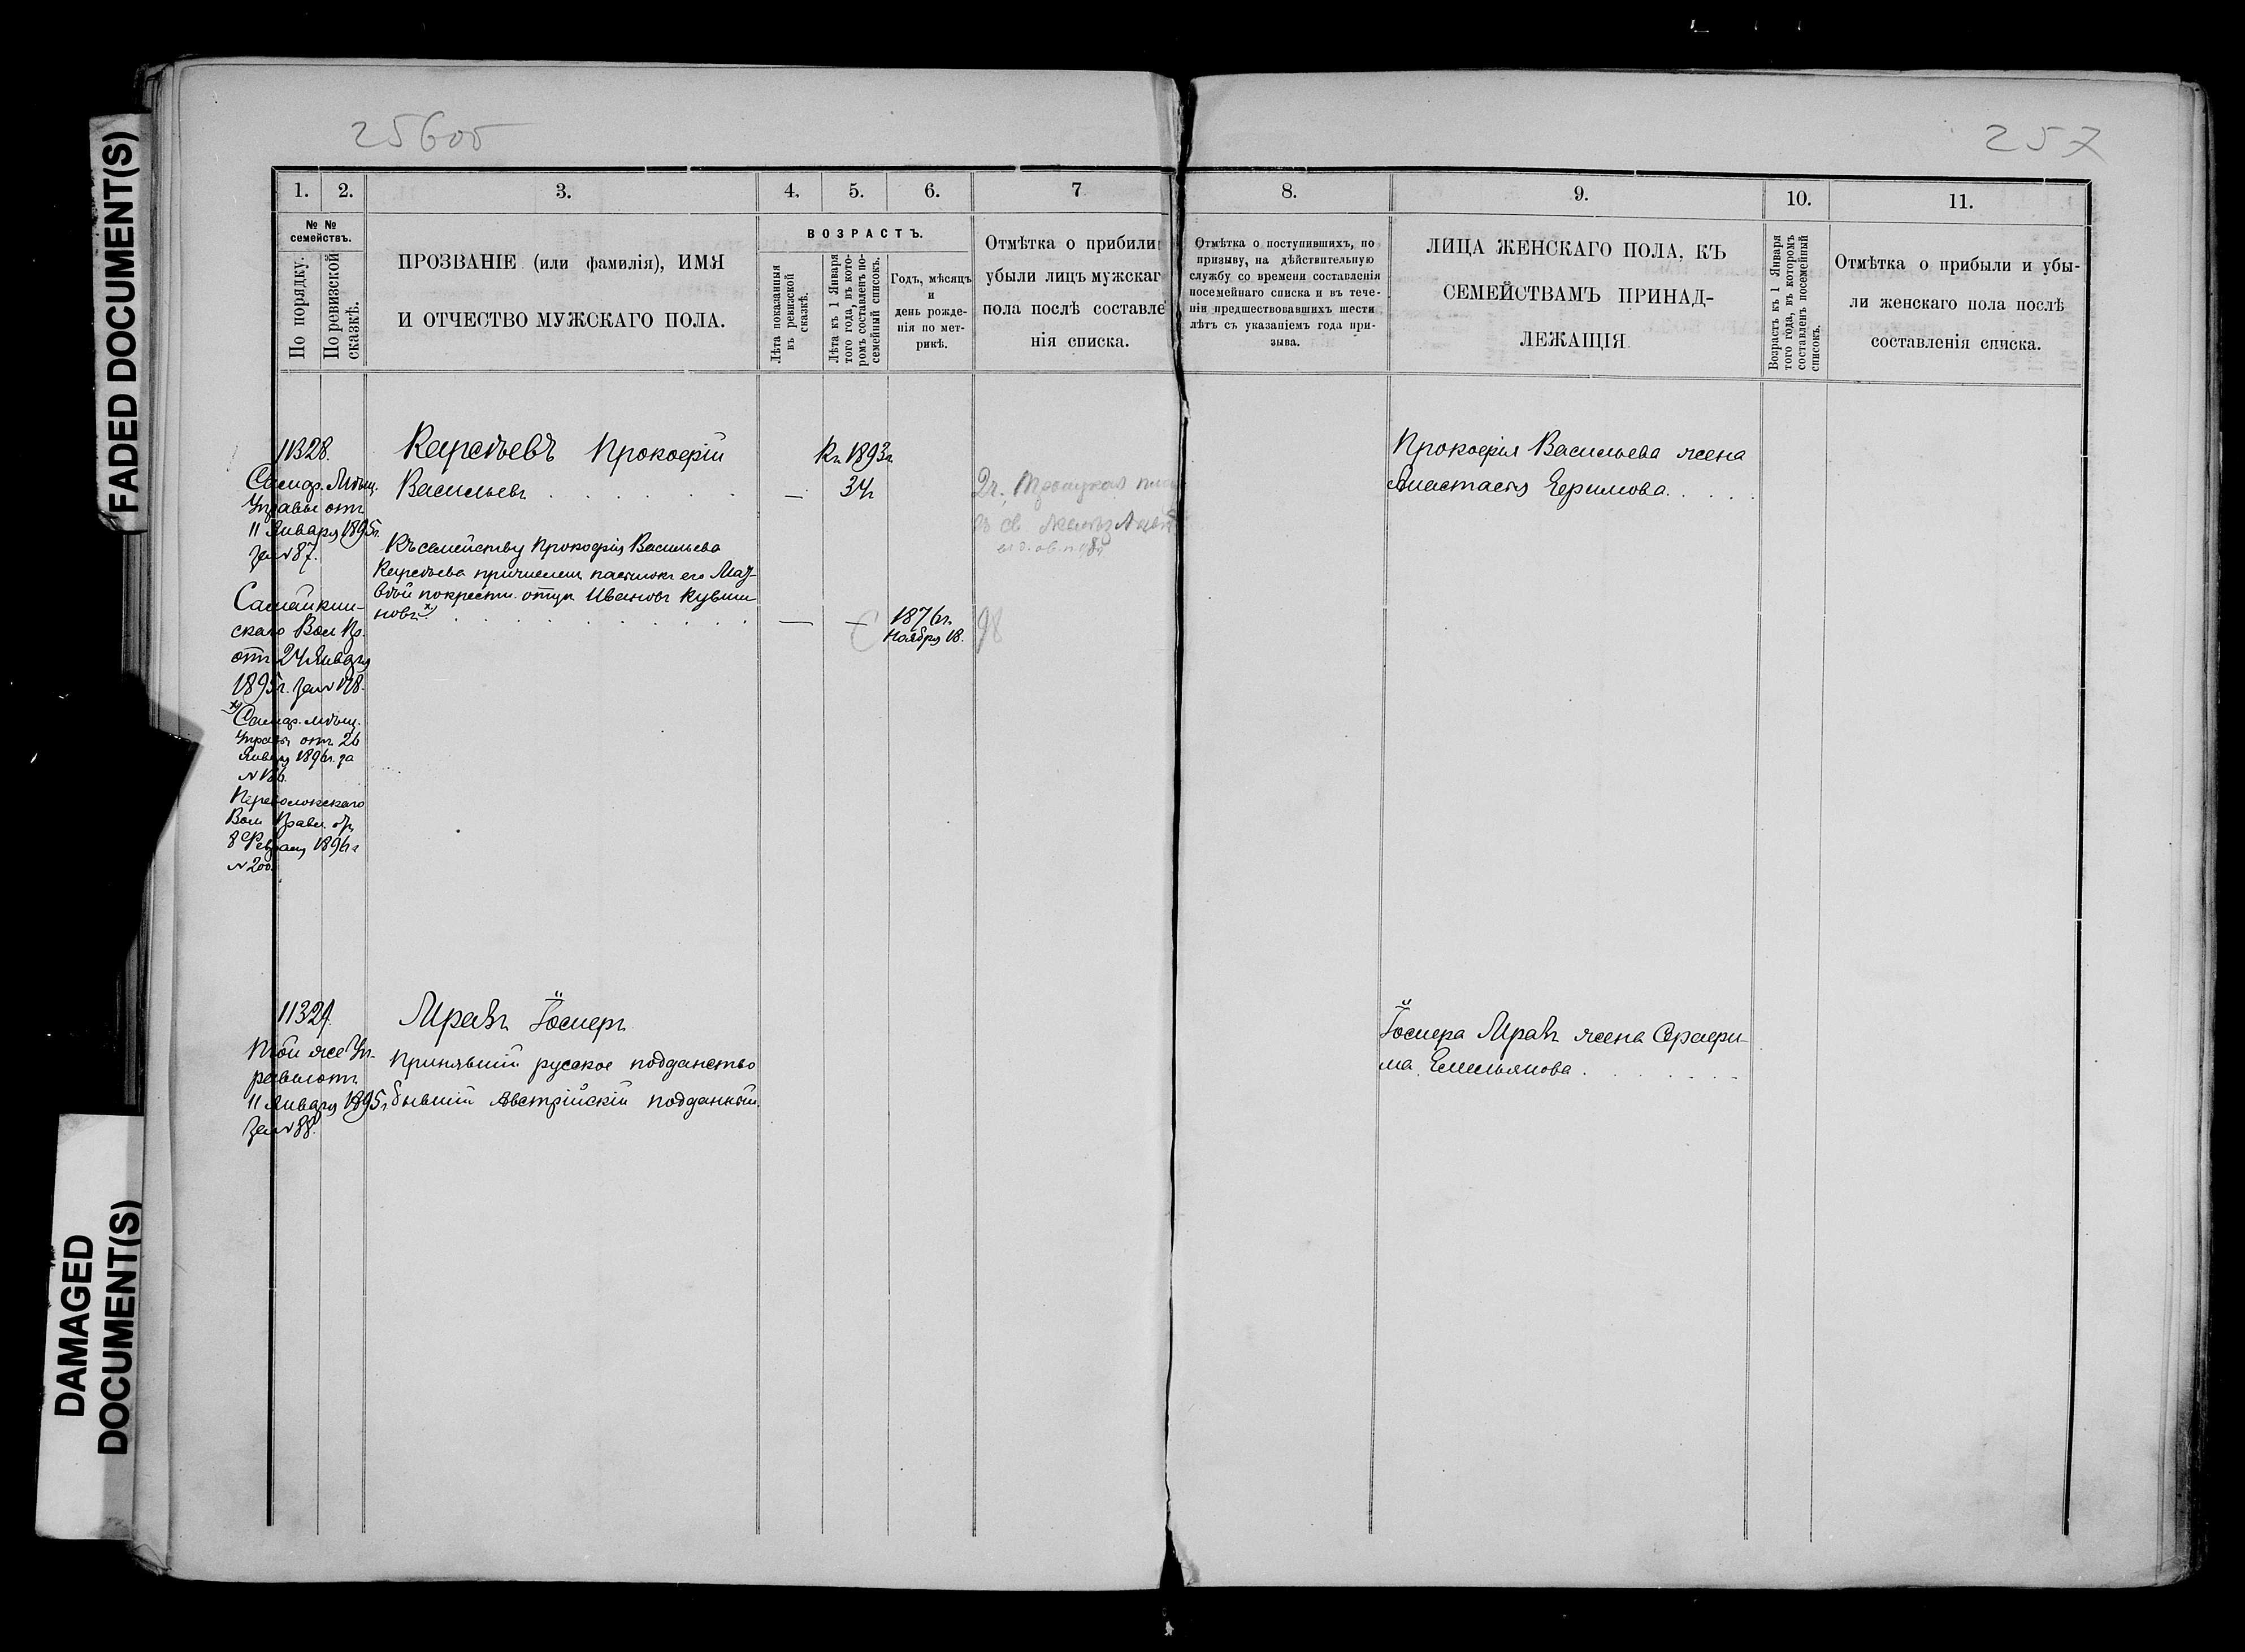 FADED DOCUMENT(S)
DAMAGED
DOCUMENT(S)
256об
257
1.
2.
3.
4.
5.
6.
7
8.
9.
10.
11.
№ №
семействъ.
По порядку.
По ревизской
сказкѣ.
ПРОЗВАНІЕ (или фамилія), ИМЯ
И ОТЧЕСТВО МУЖСКАГО ПОЛА.
ВОЗРАСТЪ.
Лѣта показанныя
въ ревизской
сказкѣ.
Лѣта къ 1 Января
того года, въ кото-
ромъ составленъ по-
семейный списокъ.
Годъ, мѣсяцъ
и
день рожде-
нія по мет-
рикѣ.
Отмѣтка о прибыли
убыли лицъ мужскаг
пола послѣ составле
нія списка.
Отмѣтка о поступившихъ, по
призыву, на дѣйствительную
службу со времени составленія
посемейнаго списка и въ тече-
ніи предшествовавшихъ шести
лѣтъ съ указаніемъ года при-
зыва.
ЛИЦА ЖЕНСКАГО ПОЛА, КЪ
СЕМЕЙСТВАМЪ ПРИНАД-
ЛЕЖАЩІЯ
Возрастъ къ 1 Января
того года, въ которомъ
составленъ посемейный
списокъ.
Отмѣтка о прибыли и убы-
ли женскаго пола послѣ
составленія списка.
11328.
Самар. Мѣщ.
Управы отъ
11 Января 1895г.
за № 87.
Самайкин-
скаго Вол Пр.
отъ 24 Января
1895г. за №
х) Самар. мѣщ.
Управы отъ 26
Января 1896г. за
№
Переволокскаго
Вол Правл. от
8 Февраля 1896г
№ 200.
Прокофій
Васильевъ
Къ семейству Прокофія Васильева
причисленъ пасынокъ его
покрестн. отцу Ивановъ Кувши-
новъ х)
Къ 1893г.
34
1876г.
Ноября 18.
98
Прокофія Васильева жена
Анастасія Ефимова
11329.
Той же Уп-
равы отъ
11 Января 1895г
за № 88.
Мравъ
Принявшій русское подданство
бывшій Австрійскій подданный.
Мравъ жена Серафи-
ма Емельянова